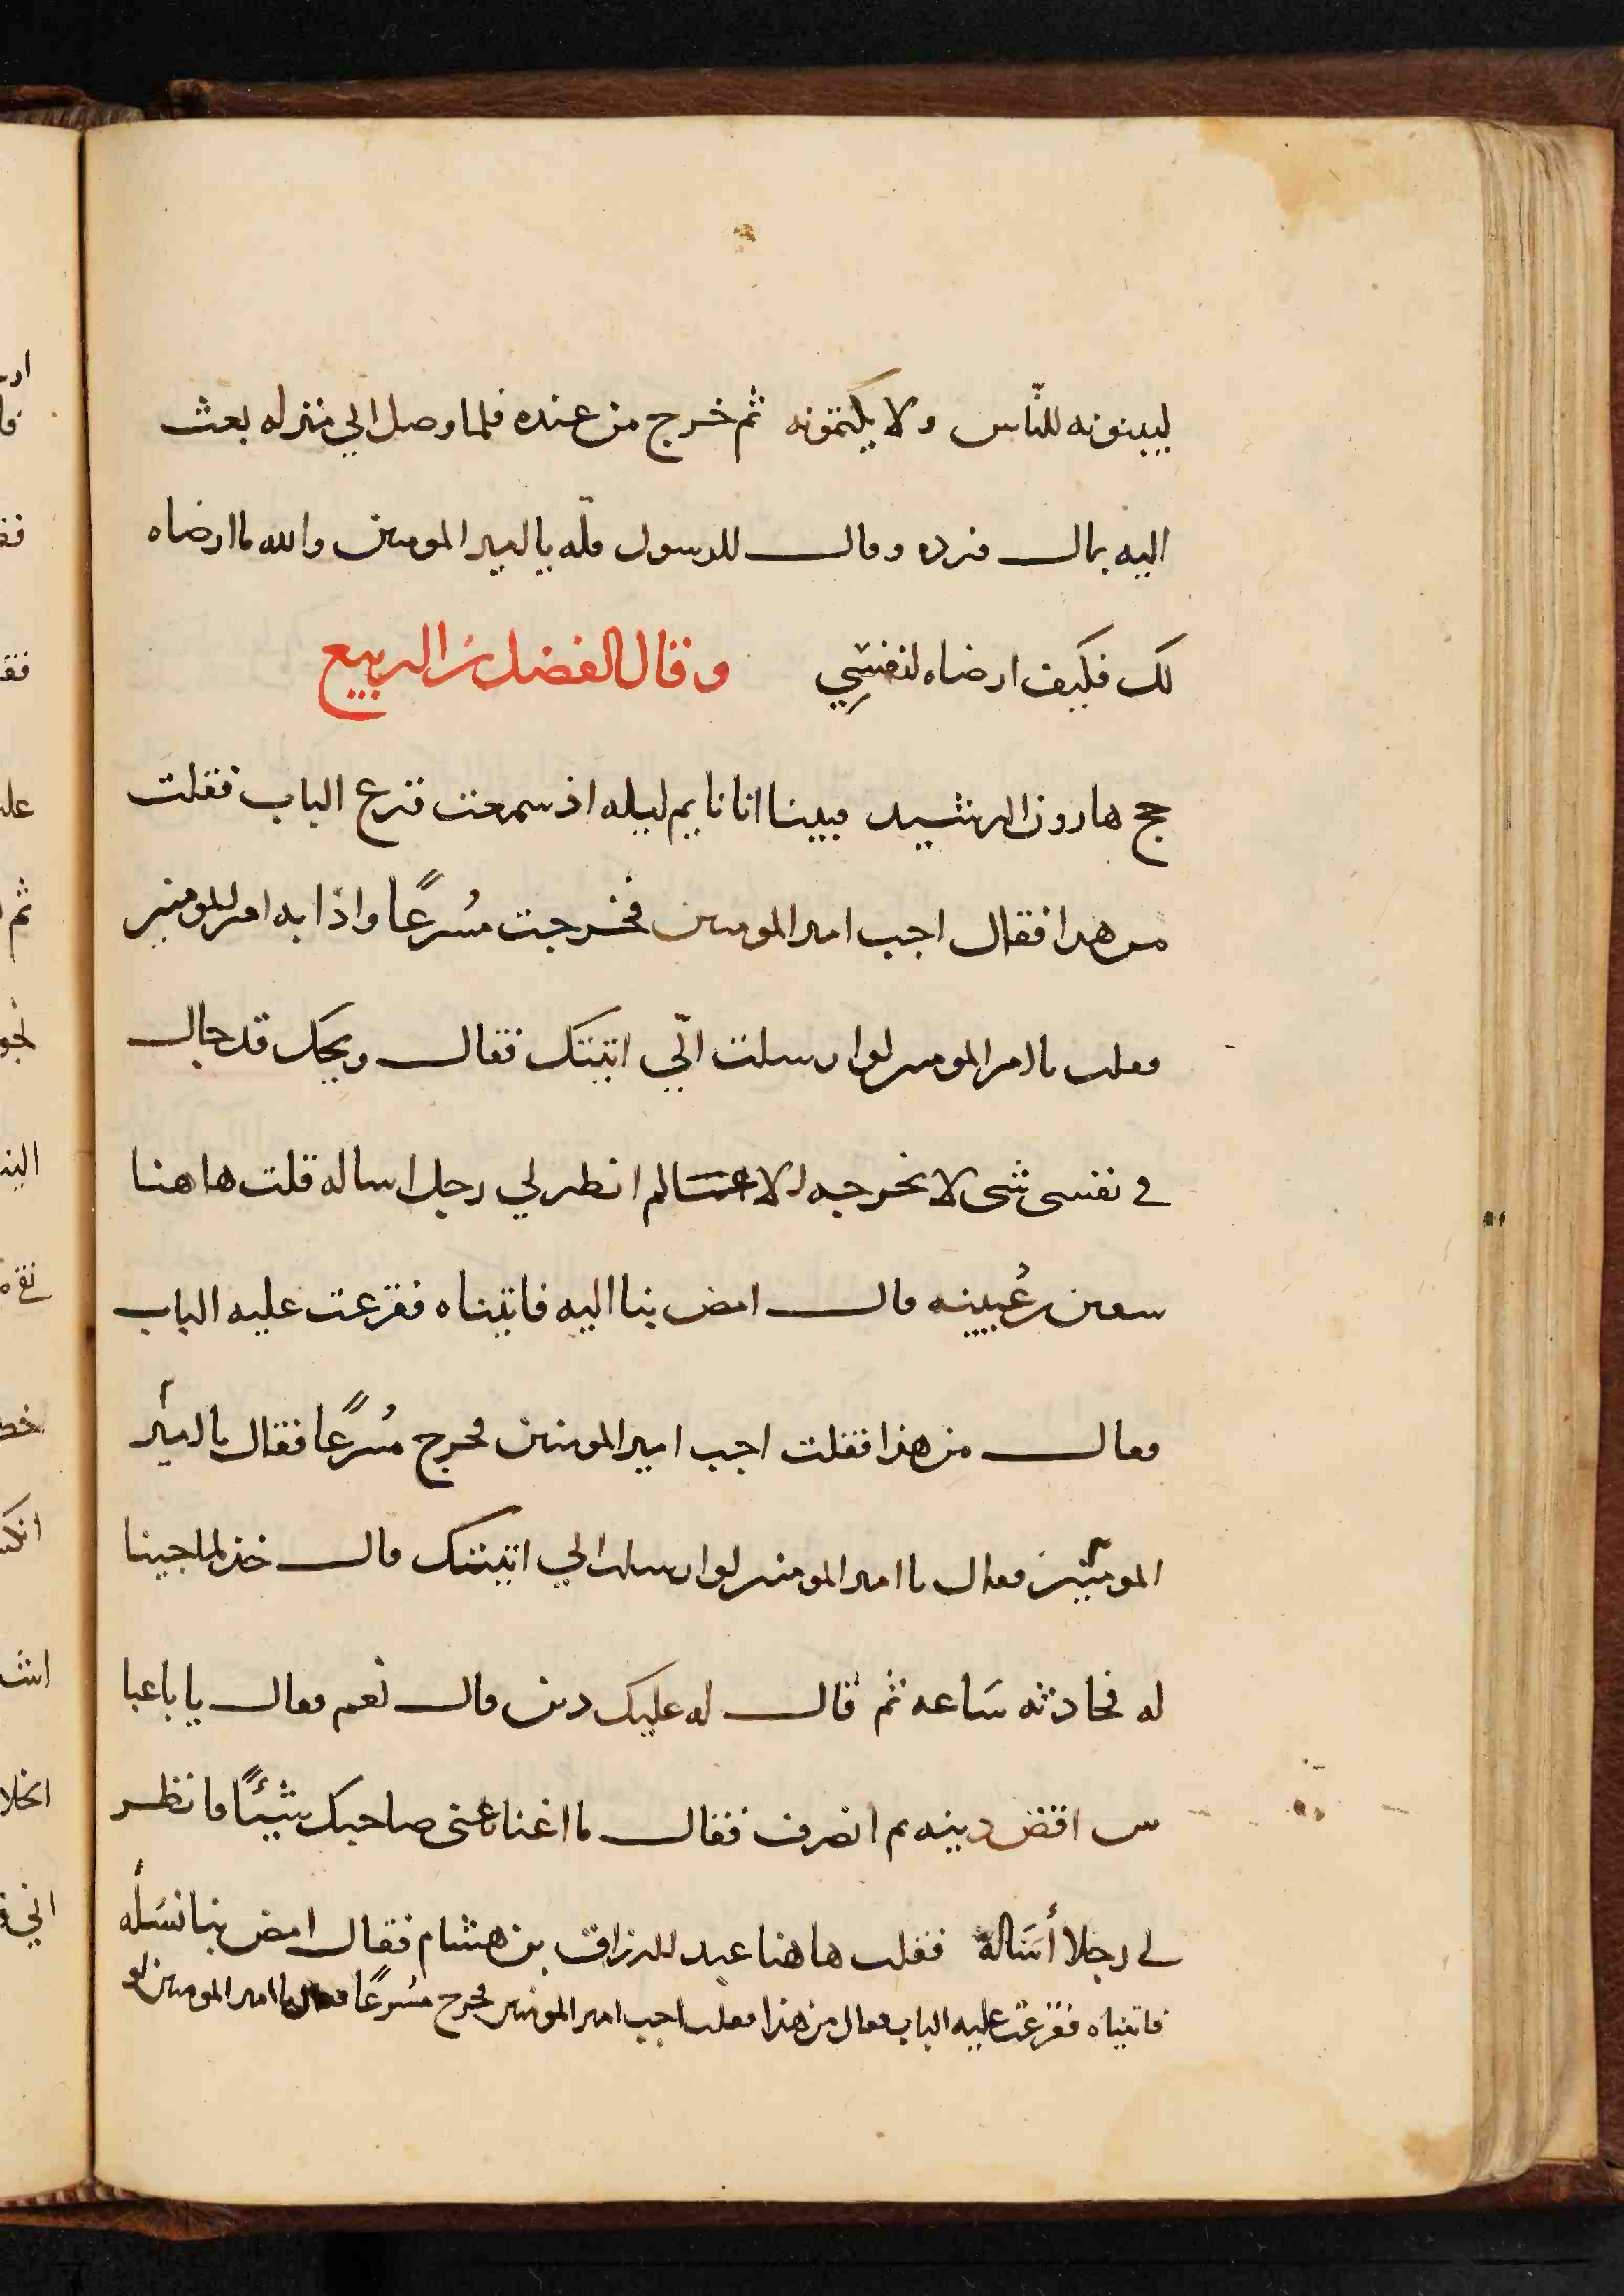 ليبينونه للنّاس ولا يكتمونه ثم خرج من عنده فلما وصل الي منزله بعث
اليه بمال فرده وقال للرسول قله يا امير المومنين والله ما ارضاه
لك فكيف ارضاه لنفسي وقال الفضل بن الربيع
حج هارون الرشيد فبينا انا نايم ليله اذ سمعت قرع الباب فقلت
من هذا فقال اجب امير المومنين فخرجت مُسرعًا واذا به امير المومنين
فقلت يا امير المومنين لو ارسلت اليّ اتيتك فقال ويحك قد جال
في نفسي شي لا يخرجه الا عالم انظر لي رجل اساله قلت هاهنا
سفين بن عُيينه قال امض بنا اليه فاتيناه فقرعت عليه الباب
فقال من هذا فقلت اجب امير المومنين فخرج مُسرعًا فقال يا امير
المومنين فقال يا امير المومنين لو ارسلت الي اتيتك قال خذ لما جينا
له فحادثه سَاعه ثم قال له عليك دين قال نعم فقال يا باعبا
س اقض دينه ثم انصرف فقال ما اغنا عني صاحبك شيئًا فانظر
لي رجلا أسَاله فقلت هاهنا عبد الرزاق بن هشام فقال امض بنا نسَأله
فاتيناه فقرعت عليه الباب فقال من هذا فقلت اجب امير المومنين فخرج مسُرعًا فقال يا امير المومنين لو